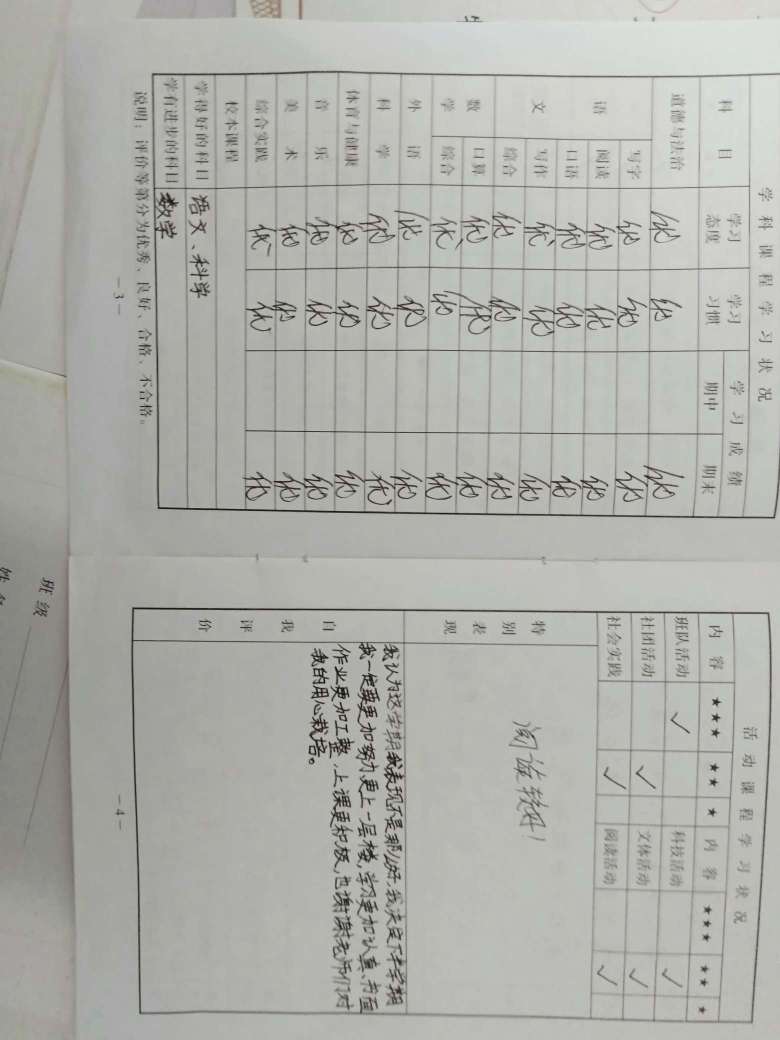 学科课程学习状况
科目 学习态度 学习习惯 学习成绩
期中 期末
道德与法治 优 优 优
语文 写字 优 优 优
阅读 优 优 优
口语 优 优 优
写作 优 优 优
综合 优 优 优
数学 口算 优 优 优
综合 优 优 优
外语 优 优 优
科学 优 优 优
体育与健康 优 优 优
音乐 优 优 优
美术 优 优 优
综合实践 优 优 优
校本课程
学得好的科目 语文、科学
学有进步的科目 数学
说明：评价等第分为优秀、良好、合格、不合格。
—3—
活动课程学习状况
内容 ★★★ ★★ ★ 内容 ★★★ ★★ ★
班队活动 ✓ 科技活动 ✓
社团活动 ✓ 文体活动 ✓
社会实践 ✓ 阅读活动 ✓
特别表现
阅读较好！
自我评价
我认为这学期我表现不是那么好，我决定下半学期
我一定要更加努力更上一层楼，学习更加认真、书面
作业更加工整，上课更积极，也谢谢老师们对
我的用心栽培。
—4—
班级